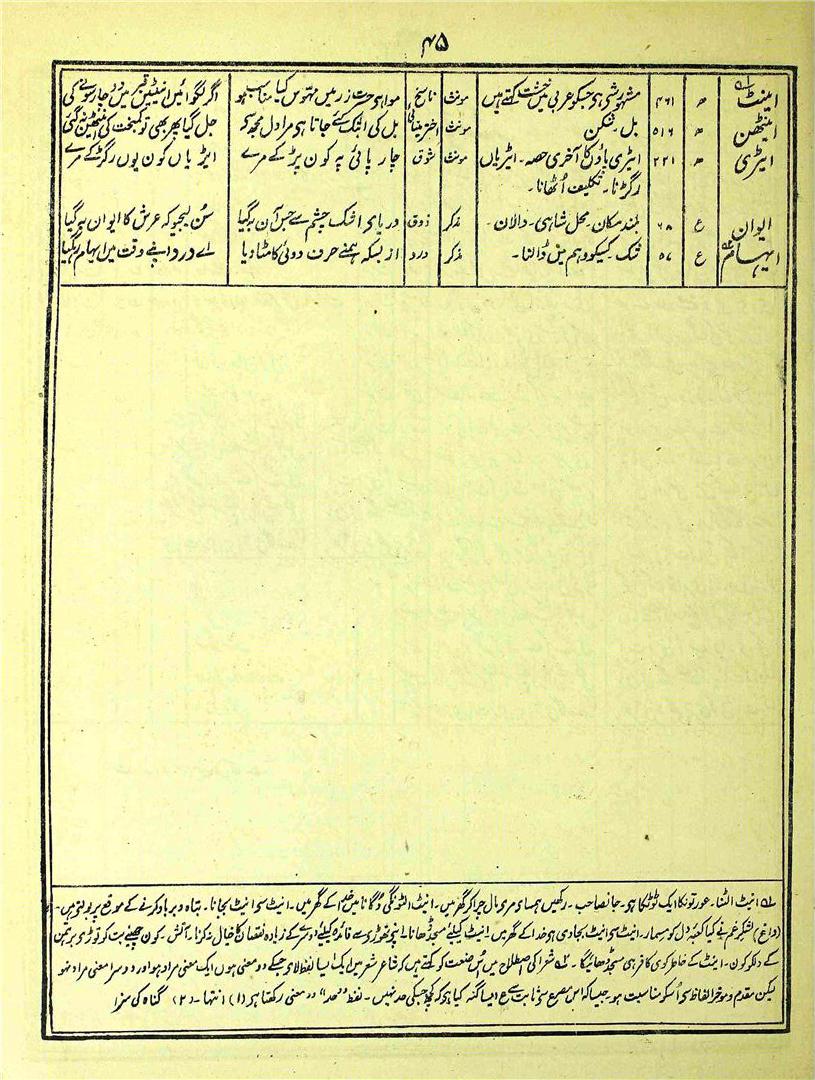 ۴۵
اینٹ ھ ۴۶۱ مشہور شی ہو جسکو عربی میں خشت کہتے ہیں مونث ناسخ مواہو حسرت زر میں مہوس کیا مناسب ہو اگر لگوائیں اینٹیں قبر میں دو چار سونے کی
اینٹھن ھ ۵۱۶ بل۔ شکن مونث اختر مینائی بل کی اٹک لئے جاتا ہو مرا دل مجھ کو جل گیا پھر بھی تو کمبخت کی اینٹھن نہ گئی
ایڑی ھ ۲۲۱ ایڑی پاؤں کا آخری حصہ۔ ایڑیاں مونث شوق چار پائی پہ کون پڑ کے مرے ایڑیاں کون یوں رگڑ کے مرے
رگڑنا۔ تکلیف اُٹھانا۔
ایوان ع ۶۸ بلند مکان۔ محل شاہی۔ دالان۔ مذکر ذوق دریاے اشک چشم سے جس آن بہ گیا سُن لیجیو کہ عرش کا ایوان بہ گیا
ایہام ع ۵۷ شک۔ کسیکو وہم میں ڈالنا۔ مذکر درد از بسکہ ہمنے حرف دوئی کا مٹا دیا اے درد اپنے وقت میں ایہام رہگیا
۱؎ اینٹ الٹنا۔ عورتونکا ایک ٹوٹکا ہو۔ جانصاحب۔ رکھیں ہمسای مری بال چرا کر گھر میں۔ اینٹ الٹونگی دُگانا میں خدا کے گھر میں۔ اینٹ سی اینٹ بجانا۔ تباہ و برباد کرنے کے موقع پر بولتی ہیں۔
(داغ) لشکر غم نے کیا کعبۂ دل کو مسمار۔ اینٹ سی اینٹ بجادی ہو خدا کے گھر میں۔ اینٹ کیلئے مسجد ڈھانا۔ اپنو تھوڑی سے فائدہ کیلئے دوسرے کے زیادہ نقصان کا خیال نہ کرنا۔ آتش۔ کون چھپے بت کو توڑی برہمن
کے دلکو کون۔ اینٹ کے خاطر کوی کافر ہی مسجد ڈھائیگا۔ ۲؎ شعرا کی اصطلاح میں اُس صنعت کو کہتے ہیں کہ شاعر شعر میں ایک ایسا لفظ لاو جسکے دو معنی ہوں ایک معنی مراد ہو اور دوسرا معنی مراد نہو
لیکن مقدم و موخر الفاظ سی اُسکو مناسبت ہو۔ جیسا کہ اس مصرع سی ثابت ہے ع ایسا گنہ کیا ہی کہ کچھ جسکی حد نہیں۔ لفظ "حد" دو معنی رکھتا ہر (۱) انتہا۔ (۲) گناہ کی سزا